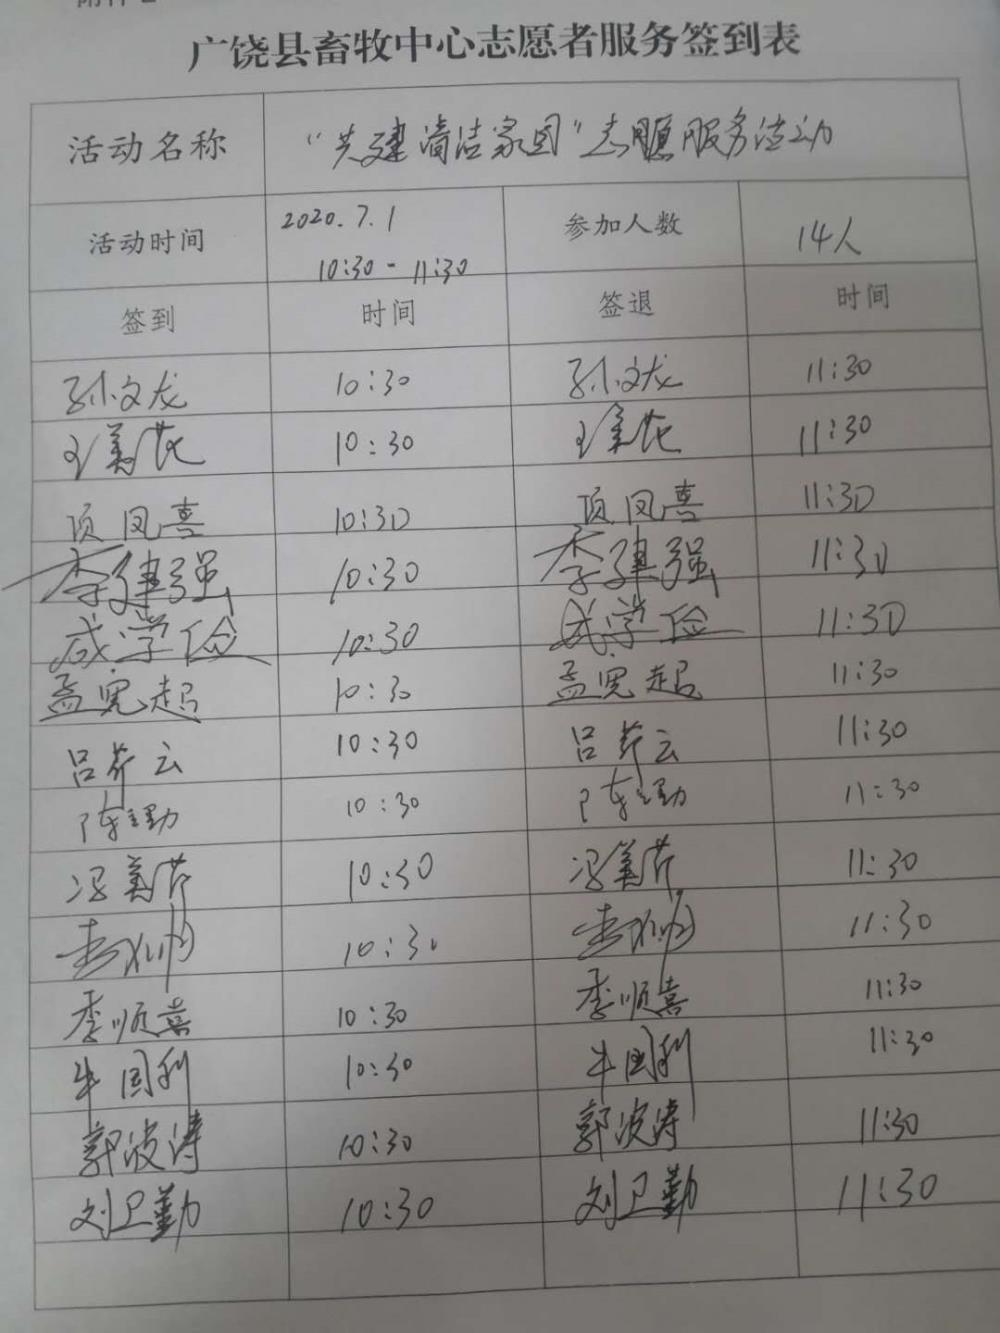 广饶县畜牧中心志愿者服务签到表
活动名称 “共建清洁家园”志愿服务活动
活动时间 2020.7.1 10:30-11:30 参加人数 14人
签到 时间 签退 时间
孙文龙 10:30 孙文龙 11:30
王美花 10:30 王美花 11:30
项凤喜 10:30 项凤喜 11:30
李建强 10:30 李建强 11:30
成学俭 10:30 成学俭 11:30
孟宪超 10:30 孟宪超 11:30
吕芹云 10:30 吕芹云 11:30
陈勤 10:30 陈勤 11:30
冯美芹 10:30 冯美芹 11:30
10:30 11:30
李顺喜 10:30 李顺喜 11:30
牛国利 10:30 牛国利 11:30
郭波涛 10:30 郭波涛 11:30
刘卫勤 10:30 刘卫勤 11:30